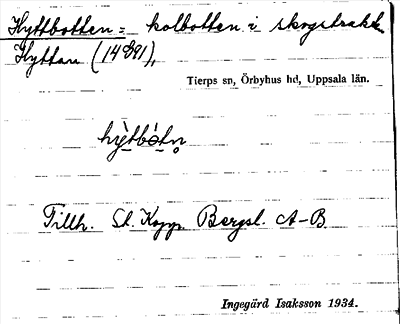 Hyttbotten = kolbotten i skogstrakt.
Hyttan (14891),
Tierps sn, Örbyhus hd, Uppsala län.
hy̆tbòtn̥
Tillh. St. Kopp. Bergsl. A-B.
Ingegärd Isaksson 1934.